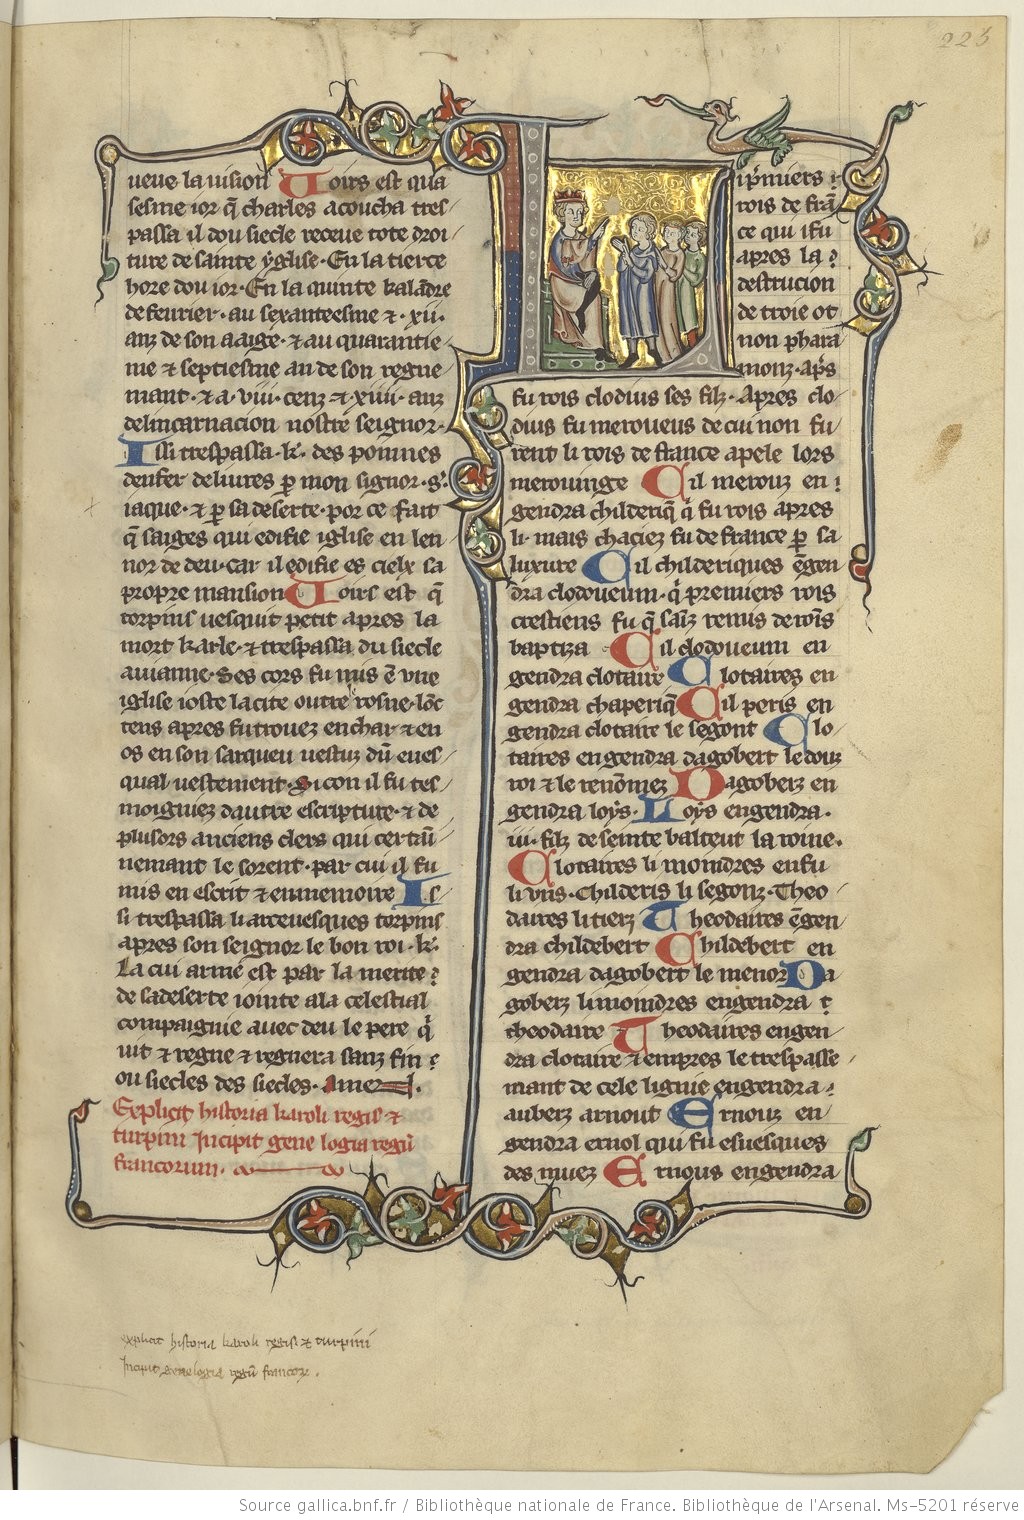 225
ueue la uision Voirs est qua
sesme ior q̃ charles acoucha tres
passa il dou siecle receue tote droi
ture de sainte yglise · En la tierce
hore dou ior · En la quinte kalãdre
de feurier · au sexanteesme ⁊ · xii ·
anz de son aaige · ⁊ au quarantie
me ⁊ septiesme an de son regne
mant · ⁊ a · viii · cenz ⁊ xiiii · anz
delincarnacion nostre seignor ·
Issi trespassa · k̃ · des poinnes
denfer deliures p̱ mon signor · s̃ ·
iaque · ⁊ p̱ sa deserte · por ce fait
q̃ saiges qui edifie iglise en len
nor de deu · Car il edifie es cielx sa
propre mansion Voirs est q̃
torpins uesquit petit apres la
mort karle · ⁊ trespassa du siecle
auianne · Ses cors fu mis ẽ vne
iglise ioste la cite outre rosne · lõc
tens apres fu trouez en char ⁊ en
os en son sarqueu uestuz dũ eues
qual uestement · Si con il fu tes
moigniez dautre escripture · ⁊ de
plusors anciens clers qui certãi
nemant le sorent · par cui il fu
mis en escrit ⁊ en memoire Is
si trespassa li arceuesques torpins
apres son seignor le bon roi · k̃ ·
La cui arme est par la merite
de sa deserte iointe a la celestial
compaignie auec deu le pere q̃
uit ⁊ regne ⁊ regnera sanz fin
ou siecles des siecles · Amen
Explicit historia karoli regis ⁊
turpini Incipit gene logia regũ
francorum ·
Li p̃miers
rois de frã
ce qui i fu
apres la
destrucion
de troie ot
non phara
monz · ap̃s
fu rois clodius ses filz · Apres clo
dius fu meroueus de cui non fu
rent li rois de france apele lors
merouinge Cil merouz en
gendra childeriq̃ q̃ fu rois apres
li · mais chaciez fu de france p̱ sa
luxure Cil childeriques ẽgen
dra clodoueum · q̃ premiers rois
crestiens fu q̃ saĩz remis de roĩs
baptiza Cil clodoueum en
gendra clotaire Clotaires en
gendra chaperiq̃ Cil peris en
gendra clotaire le segont Clo
taires engendra dagobert le douz
roi ⁊ le renõmez Dagoberz en
gendra loys · Loys engendra ·
iii · filz de seinte balteut la roine ·
Clotaires li moindres en fu
li vns · Childeris li segonz · Theo
daires li tierz Theodaires ẽgen
dra childebert Childebert en
gendra dagobert le menor Da
goberz li moindres engendra t
theodaire Theodaires engen
dra clotaire ⁊ empres le trespasse
mant de cele lignie engendra
auberz arnout Ernouz en
gendra ernol qui fu esuesques
des muez Ernous engendra
explicit historia karoli regis ⁊ turpini
Incipit genelogia regũ francoꝝ .
Source gallica.bnf.fr / Bibliothèque nationale de France. Bibliothèque de l'Arsenal. Ms-5201 réserve